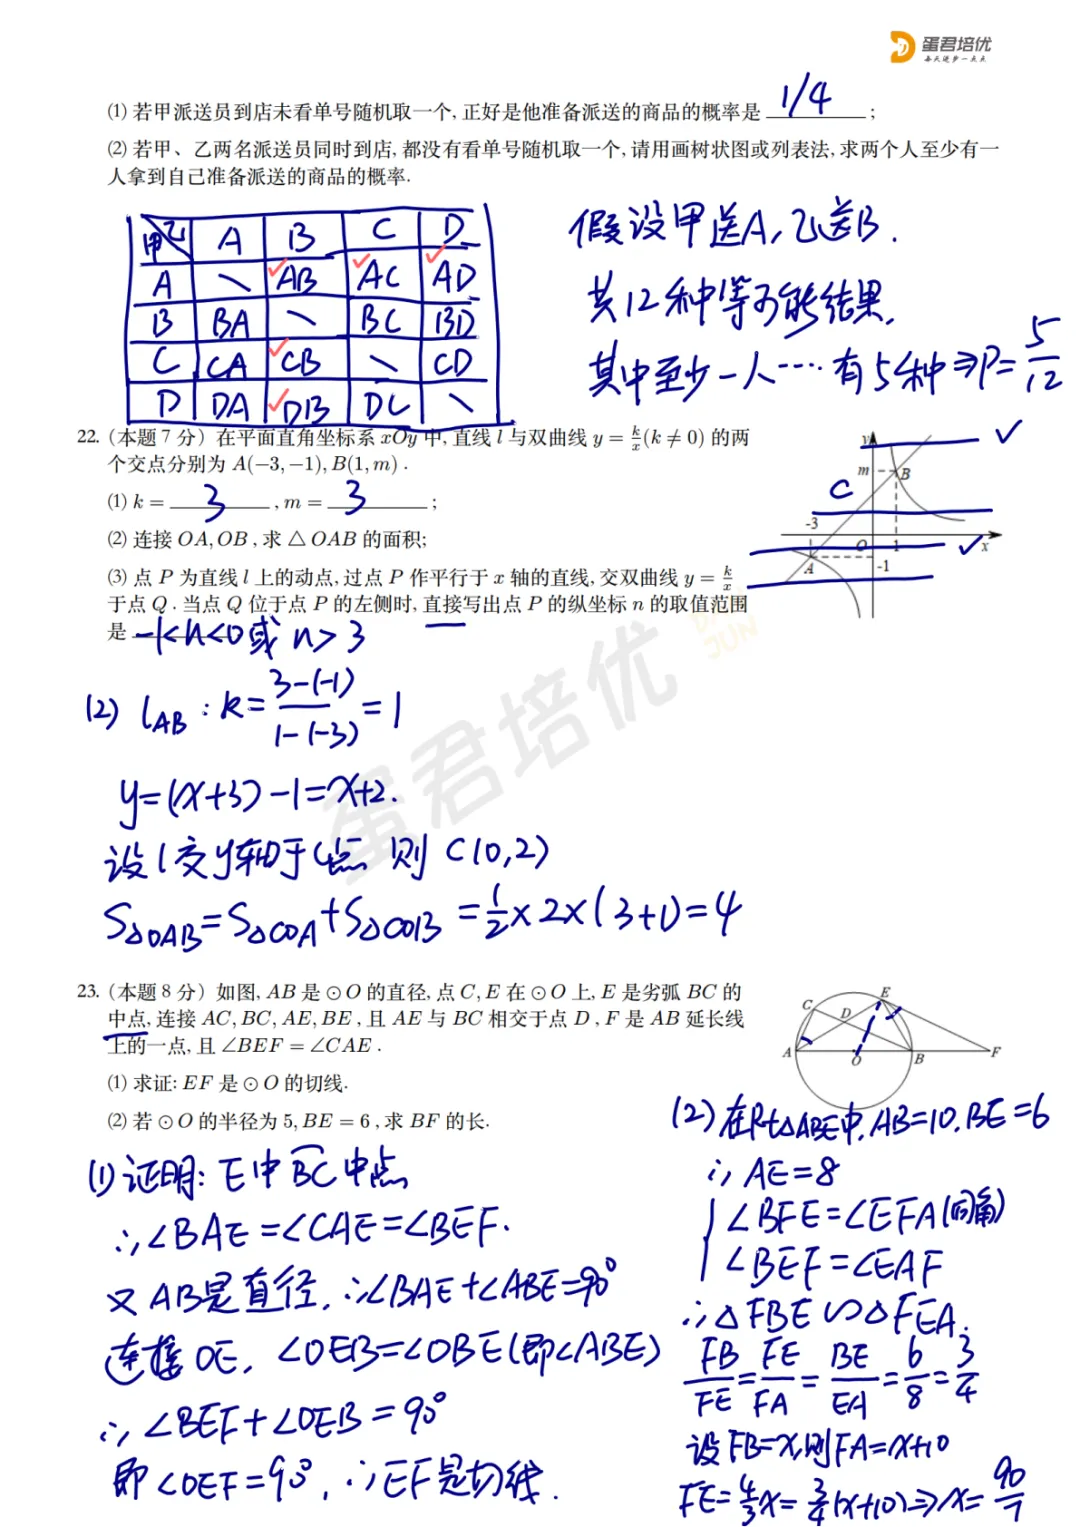 蛋君培优
每天进步一点点
(1) 若甲派送员到店未看单号随机取一个, 正好是他准备派送的商品的概率是 1/4 ;
(2) 若甲、乙两名派送员同时到店, 都没有看单号随机取一个, 请用画树状图或列表法, 求两个人至少有一
人拿到自己准备派送的商品的概率.
甲 乙 A B C D
A \ AB AC AD
B BA \ BC BD
C CA CB \ CD
D DA DB DC \
假设甲送A,乙送B.
共12种等可能结果.
其中至少一人…有5种⇒P=5/12
22. (本题 7 分) 在平面直角坐标系 xOy 中, 直线 l 与双曲线 y = k/x (k ≠ 0) 的两
个交点分别为 A(−3, −1), B(1, m) .
(1) k = 3 , m = 3 ;
(2) 连接 OA, OB , 求 △ OAB 的面积;
(3) 点 P 为直线 l 上的动点, 过点 P 作平行于 x 轴的直线, 交双曲线 y = k/x
于点 Q . 当点 Q 位于点 P 的左侧时, 直接写出点 P 的纵坐标 n 的取值范围
是 -1<n<0或 n>3
y
m
B
C
-3
O
1
x
A
-1
(2) l_AB : k = 3-(-1)/1-(-3) = 1
y=(x+3)-1=x+2.
设 l 交y轴于C点 则 C(0,2)
S△OAB=S△COA+S△COB = 1/2×2×(3+1)=4
蛋君培优
DAN JUN
23. (本题 8 分) 如图, AB 是 ⊙ O 的直径, 点 C, E 在 ⊙ O 上, E 是劣弧 BC 的
中点, 连接 AC, BC, AE, BE , 且 AE 与 BC 相交于点 D , F 是 AB 延长线
上的一点, 且 ∠BEF = ∠CAE .
(1) 求证: EF 是 ⊙ O 的切线.
(2) 若 ⊙ O 的半径为 5, BE = 6 , 求 BF 的长.
E
C
D
A
O
B
F
(1) 证明: E中BC中点
∴∠BAE=∠CAE=∠BEF.
又 AB是直径, ∴∠BAE+∠ABE=90°
连接 OE, ∠OEB=∠OBE(即∠ABE)
∴∠BEF+∠OEB=90°
即∠OEF=90°, ∴EF是切线.
(2) 在Rt△ABE中, AB=10, BE=6
∴ AE=8
∠BFE=∠EFA(同角)
∠BEF=∠EAF
∴△FBE∽△FEA.
FB/FE=FE/FA=BE/EA=6/8=3/4
设FB=x,则FA=x+10
FE=4/3x=3/4(x+10)⇒x=90/7